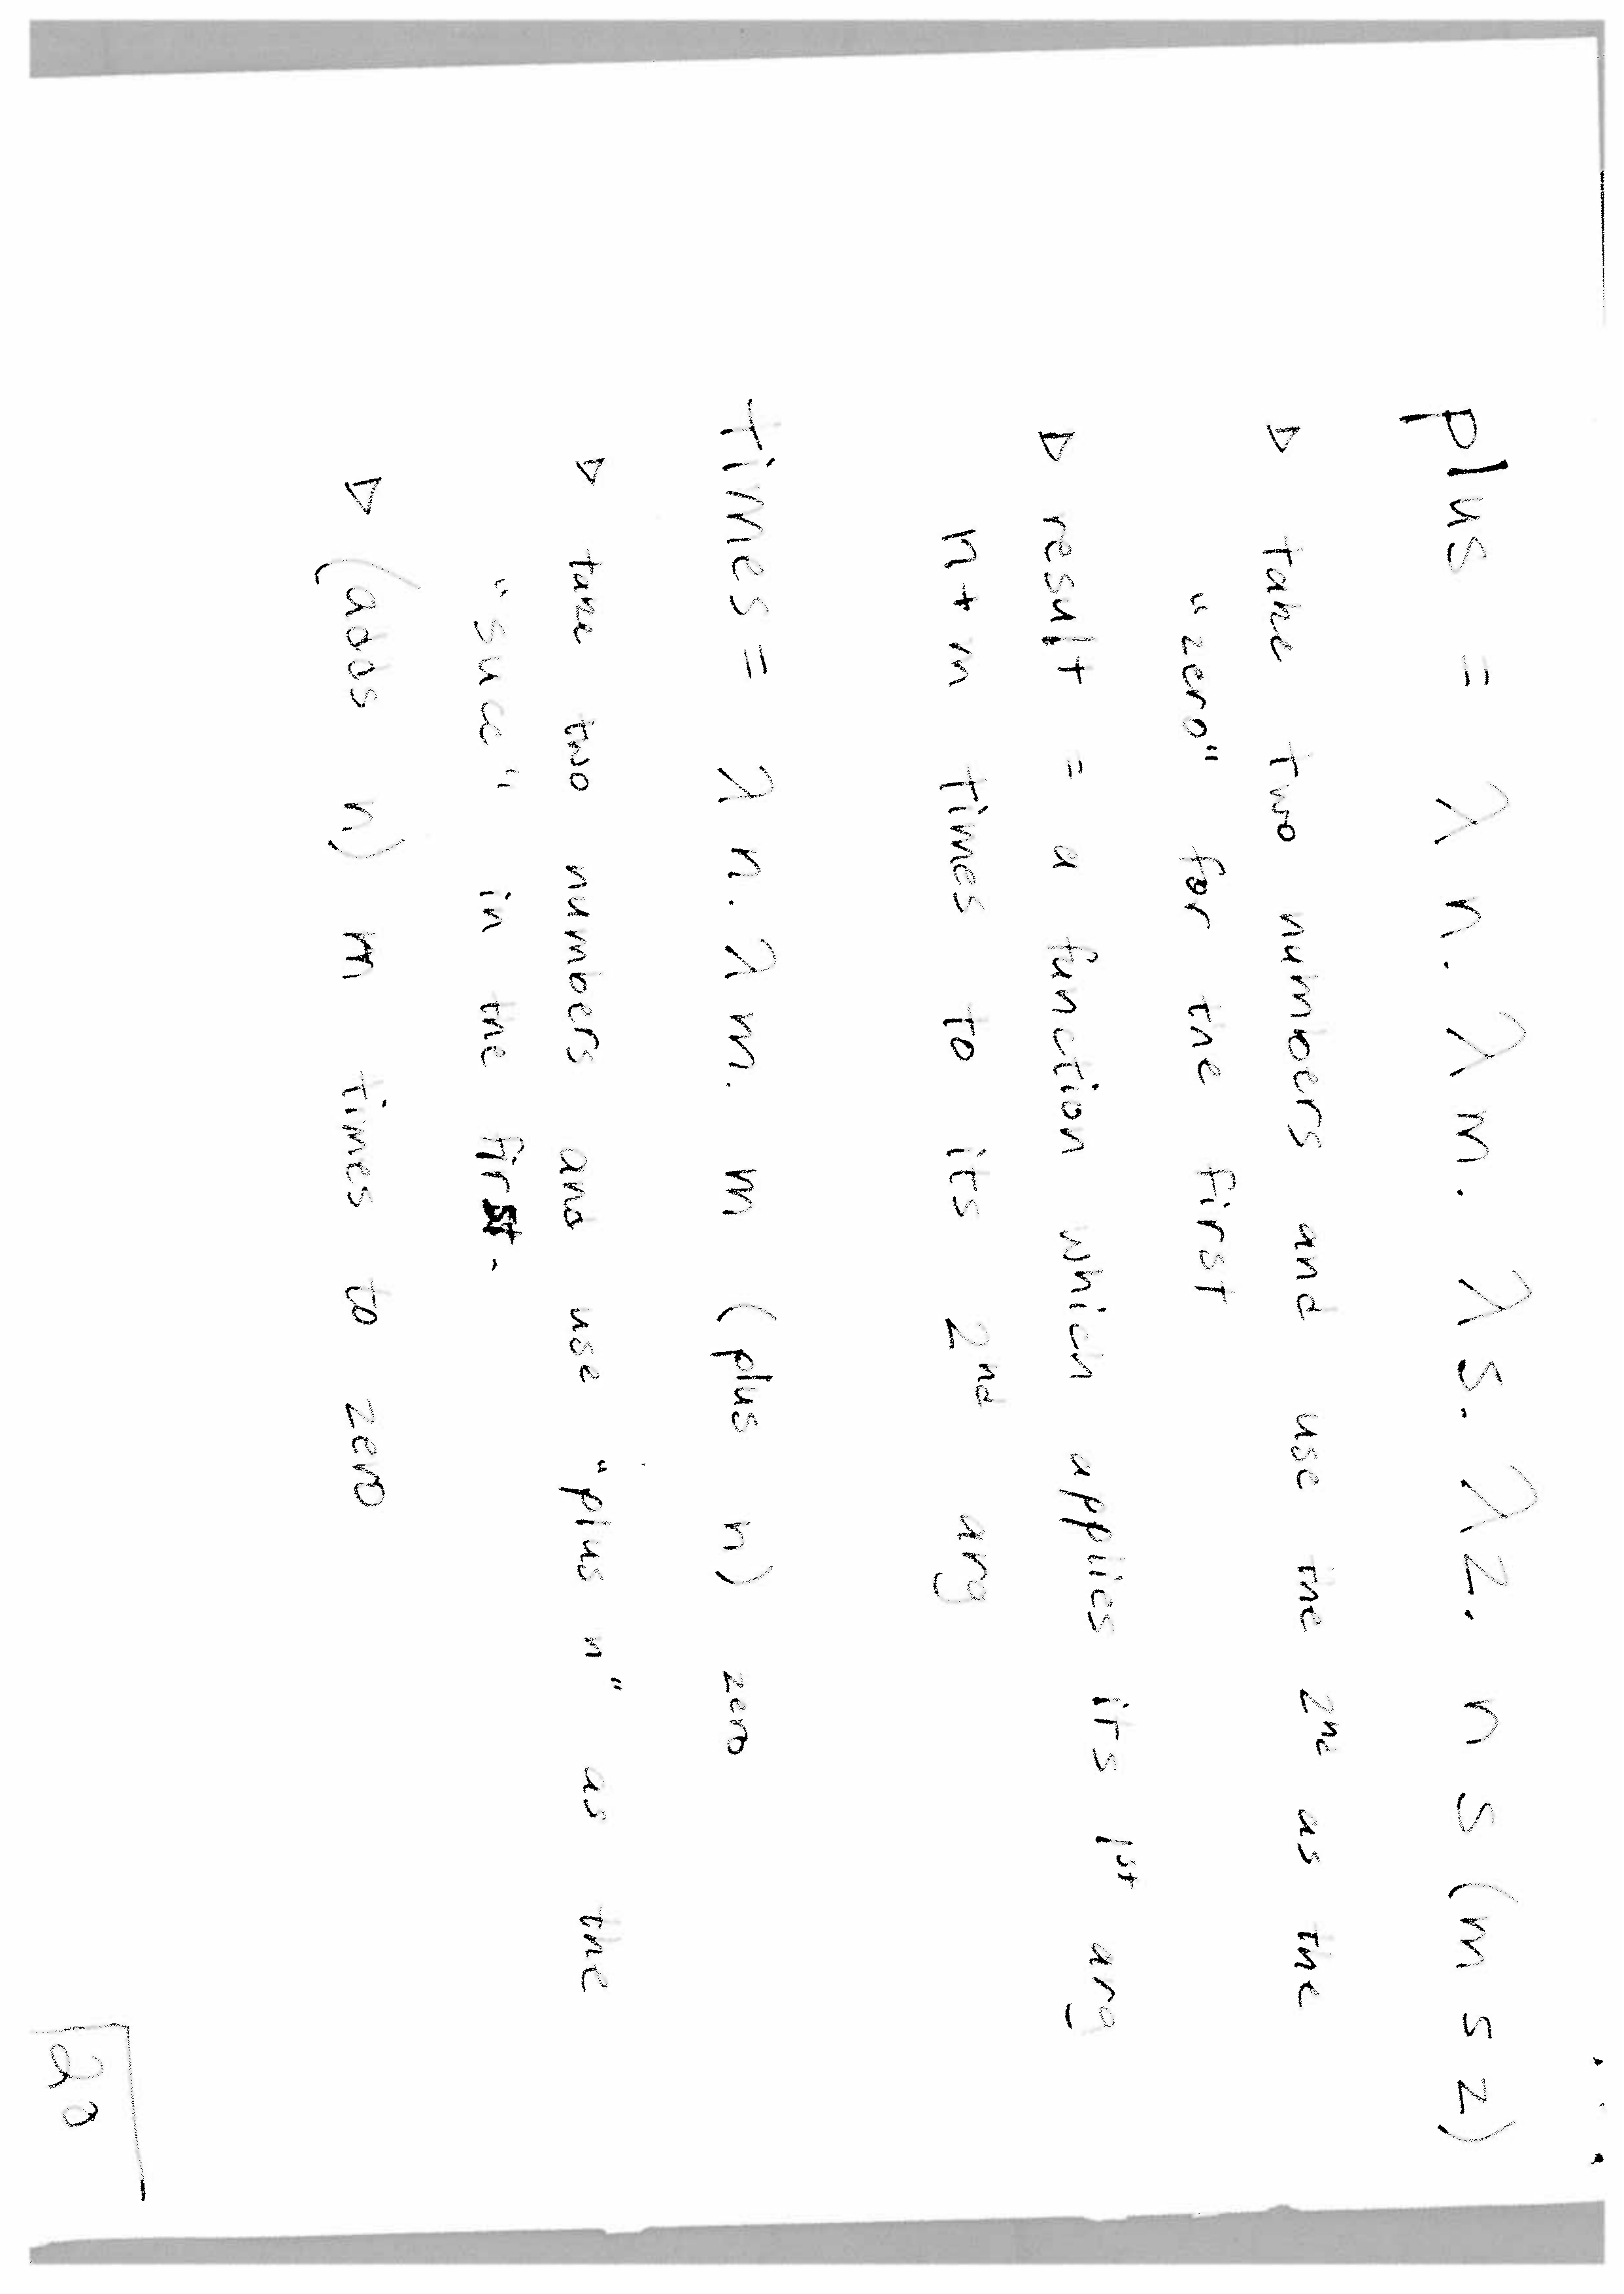 plus = λn. λm. λs. λz. n s (m s z)
▷ take two numbers and use the 2nd as the
"zero" for the first
▷ result = a function which applies its 1st arg
n+m times to its 2nd arg
times = λn. λm. m (plus n) zero
▷ take two numbers and use "plus n" as the
"succ" in the first.
▷ (adds n) m times to zero
20